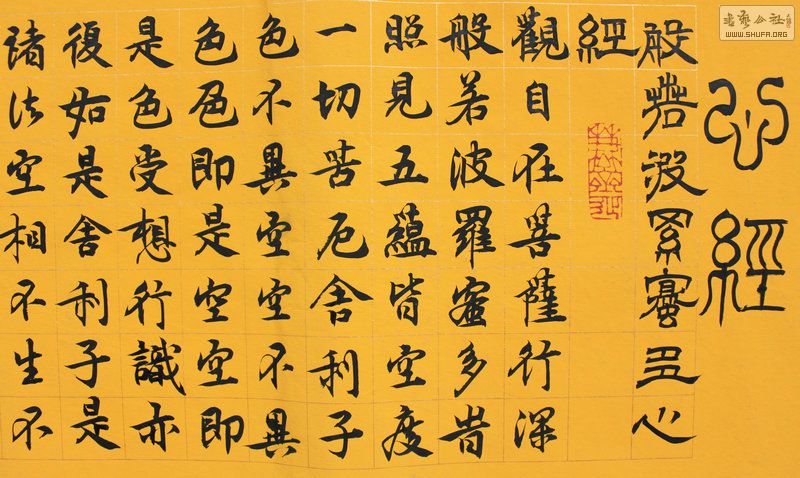 心經
般若波羅蜜多心
經
觀自在菩薩行深
般若波羅蜜多旹
照見五蘊皆空度
一切苦厄舍利子
色不異空空不異
色色即是空空即
是色受想行識亦
復如是舍利子是
諸法空相不生不
書藝公社
WWW.SHUFA.ORG